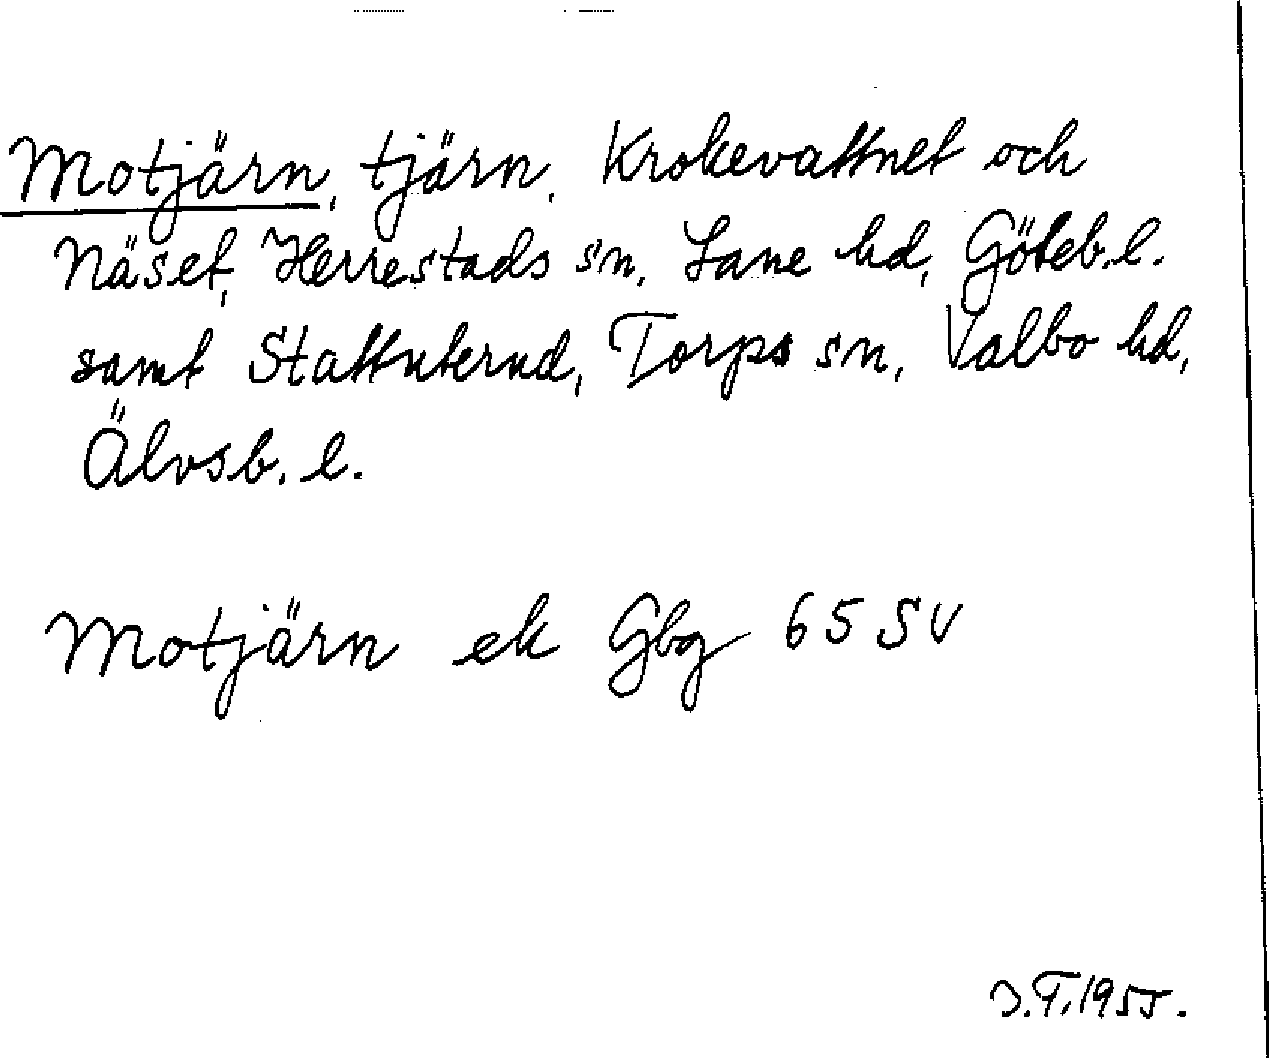 Motjärn, tjärn, Krokevattnet och
Näset, Herrestads sn, Lane hd, Göteb. l.
samt Stattuterud, Torps sn, Valbo hd,
Älvsb. l.
Motjärn ek Gbg 65 SV
J.T. 1955.